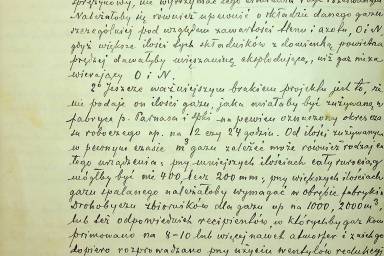 Należałoby się również upewnić o składzie danego gazu
szczególniej pod względem zawartości tlenu i azotu, O i N
gdyż większe ilości tych składników z domieszką powietrza
prędzej dawałyby mieszaninę eksplodującą, niż gaz nieza
wierający O i N.
2° Jeszcze ważniejszym brakiem projektu jest to, że
nie podaje on ilości gazu, jaka miałaby być zużywaną w
fabryce p. Parnasa i Spki na pewien oznaczony okres cza
su roboczego np. na 12 czy 24 godzin. Od ilości zużywanego
w pewnym czasie m³ gazu zależeć może również rodzaj ca
łego urządzenia; przy mniejszych ilościach cały rurociąg
mógłby być nie 400 lecz 200 mm; przy większych ilościach
gazu spalanego należałoby wymagać w obrębie fabryki w
Drohobyczu zbiorników dla gazu np na 1000, 2000 m³,
lub też odpowiednich recipientów, w którychby gaz kom
primowano na 8-10 lub więcej nawet atmosfer i z nich go
dopiero rozprowadzano przy użyciu wentylów redukcyj